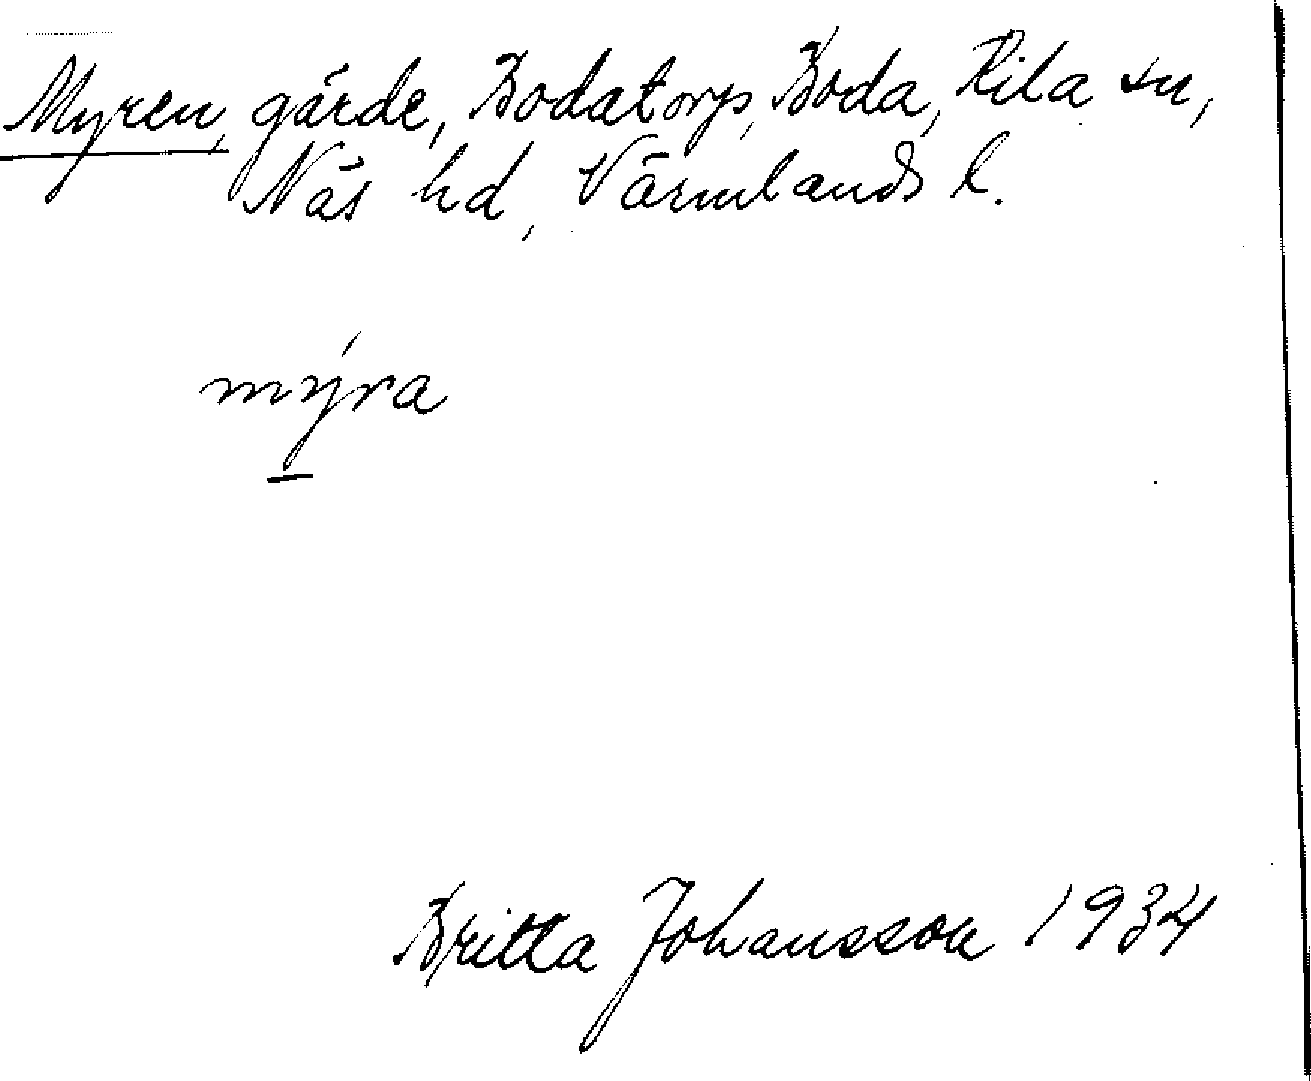 Myren, gärde, Bodatorp, Boda, Kila sn,
Näs hd, Värmlands l.
mýra
Britta Johansson 1934